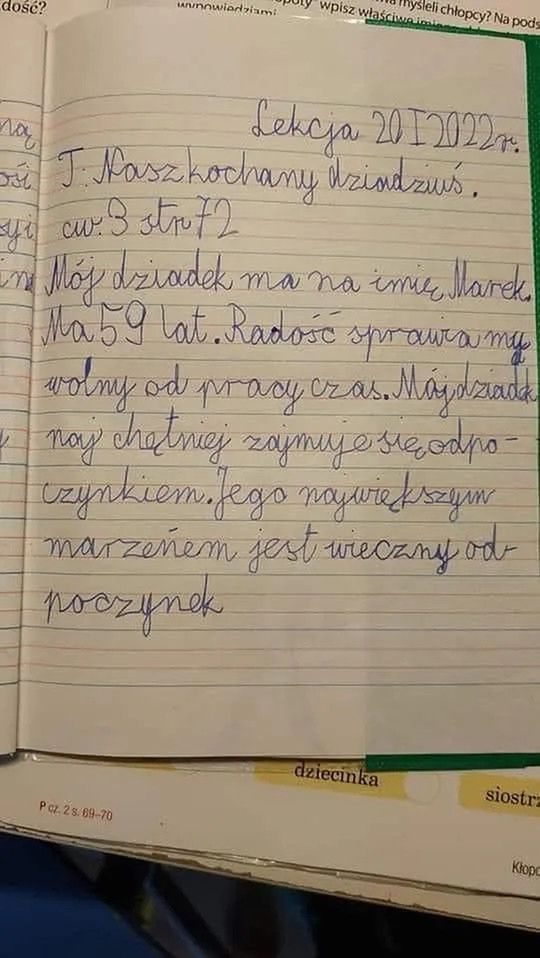 dość?
myśleli chłopcy? Na pods
wypowiedziami
wpisz właściwe
ną
Lekcja 20 I 2022r.
T: Nasz kochany dziadziuś.
ćw. 3 str 72
Mój dziadek ma na imię Marek.
Ma 59 lat. Radość sprawia mu
wolny od pracy czas. Mój dziadek
naj chętniej zajmuje się odpo-
czynkiem. Jego największym
marzeńem jest wieczny od-
poczynek
dziecinka
siostrz
P cz. 2 s. 69-70
Kłopo